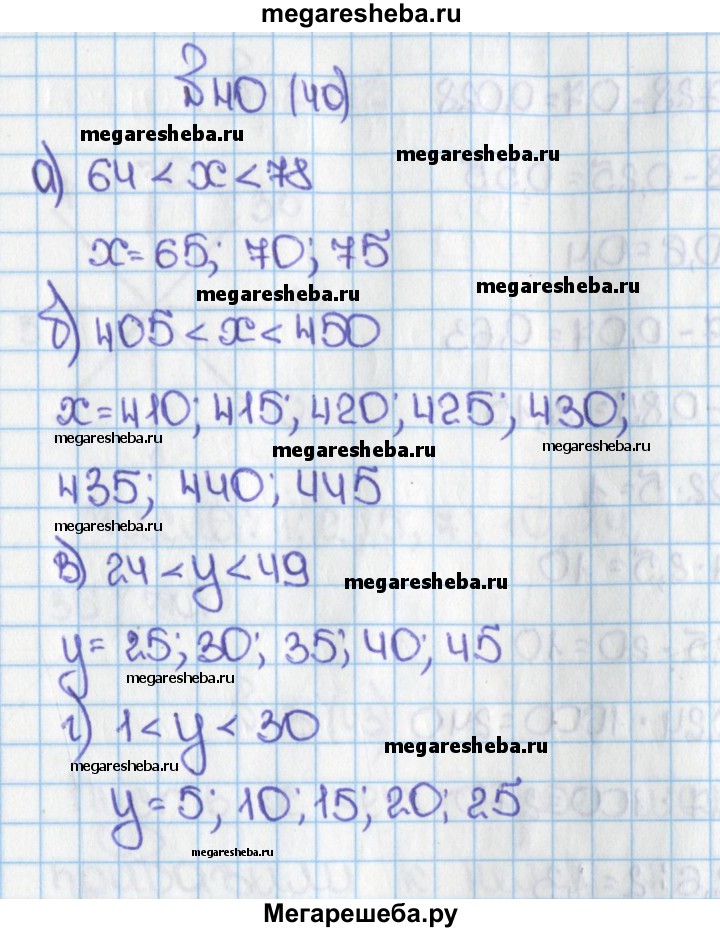 megaresheba.ru
№ 40 (40)
megaresheba.ru
megaresheba.ru
а) 64 < x < 78
x = 65; 70; 75
megaresheba.ru
megaresheba.ru
б) 405 < x < 450
x = 410; 415; 420; 425; 430;
megaresheba.ru
megaresheba.ru
megaresheba.ru
435; 440; 445
megaresheba.ru
в) 24 < y < 49
megaresheba.ru
y = 25; 30; 35; 40; 45
megaresheba.ru
г) 1 < y < 30
megaresheba.ru
megaresheba.ru
y = 5; 10; 15; 20; 25
megaresheba.ru
Мегарешеба.ру